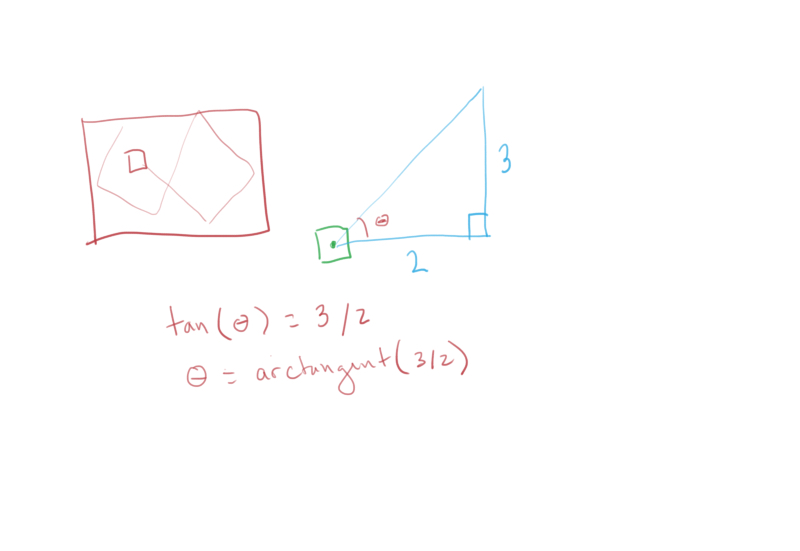 3
θ
2
tan(θ) = 3/2
θ = arctangent(3/2)